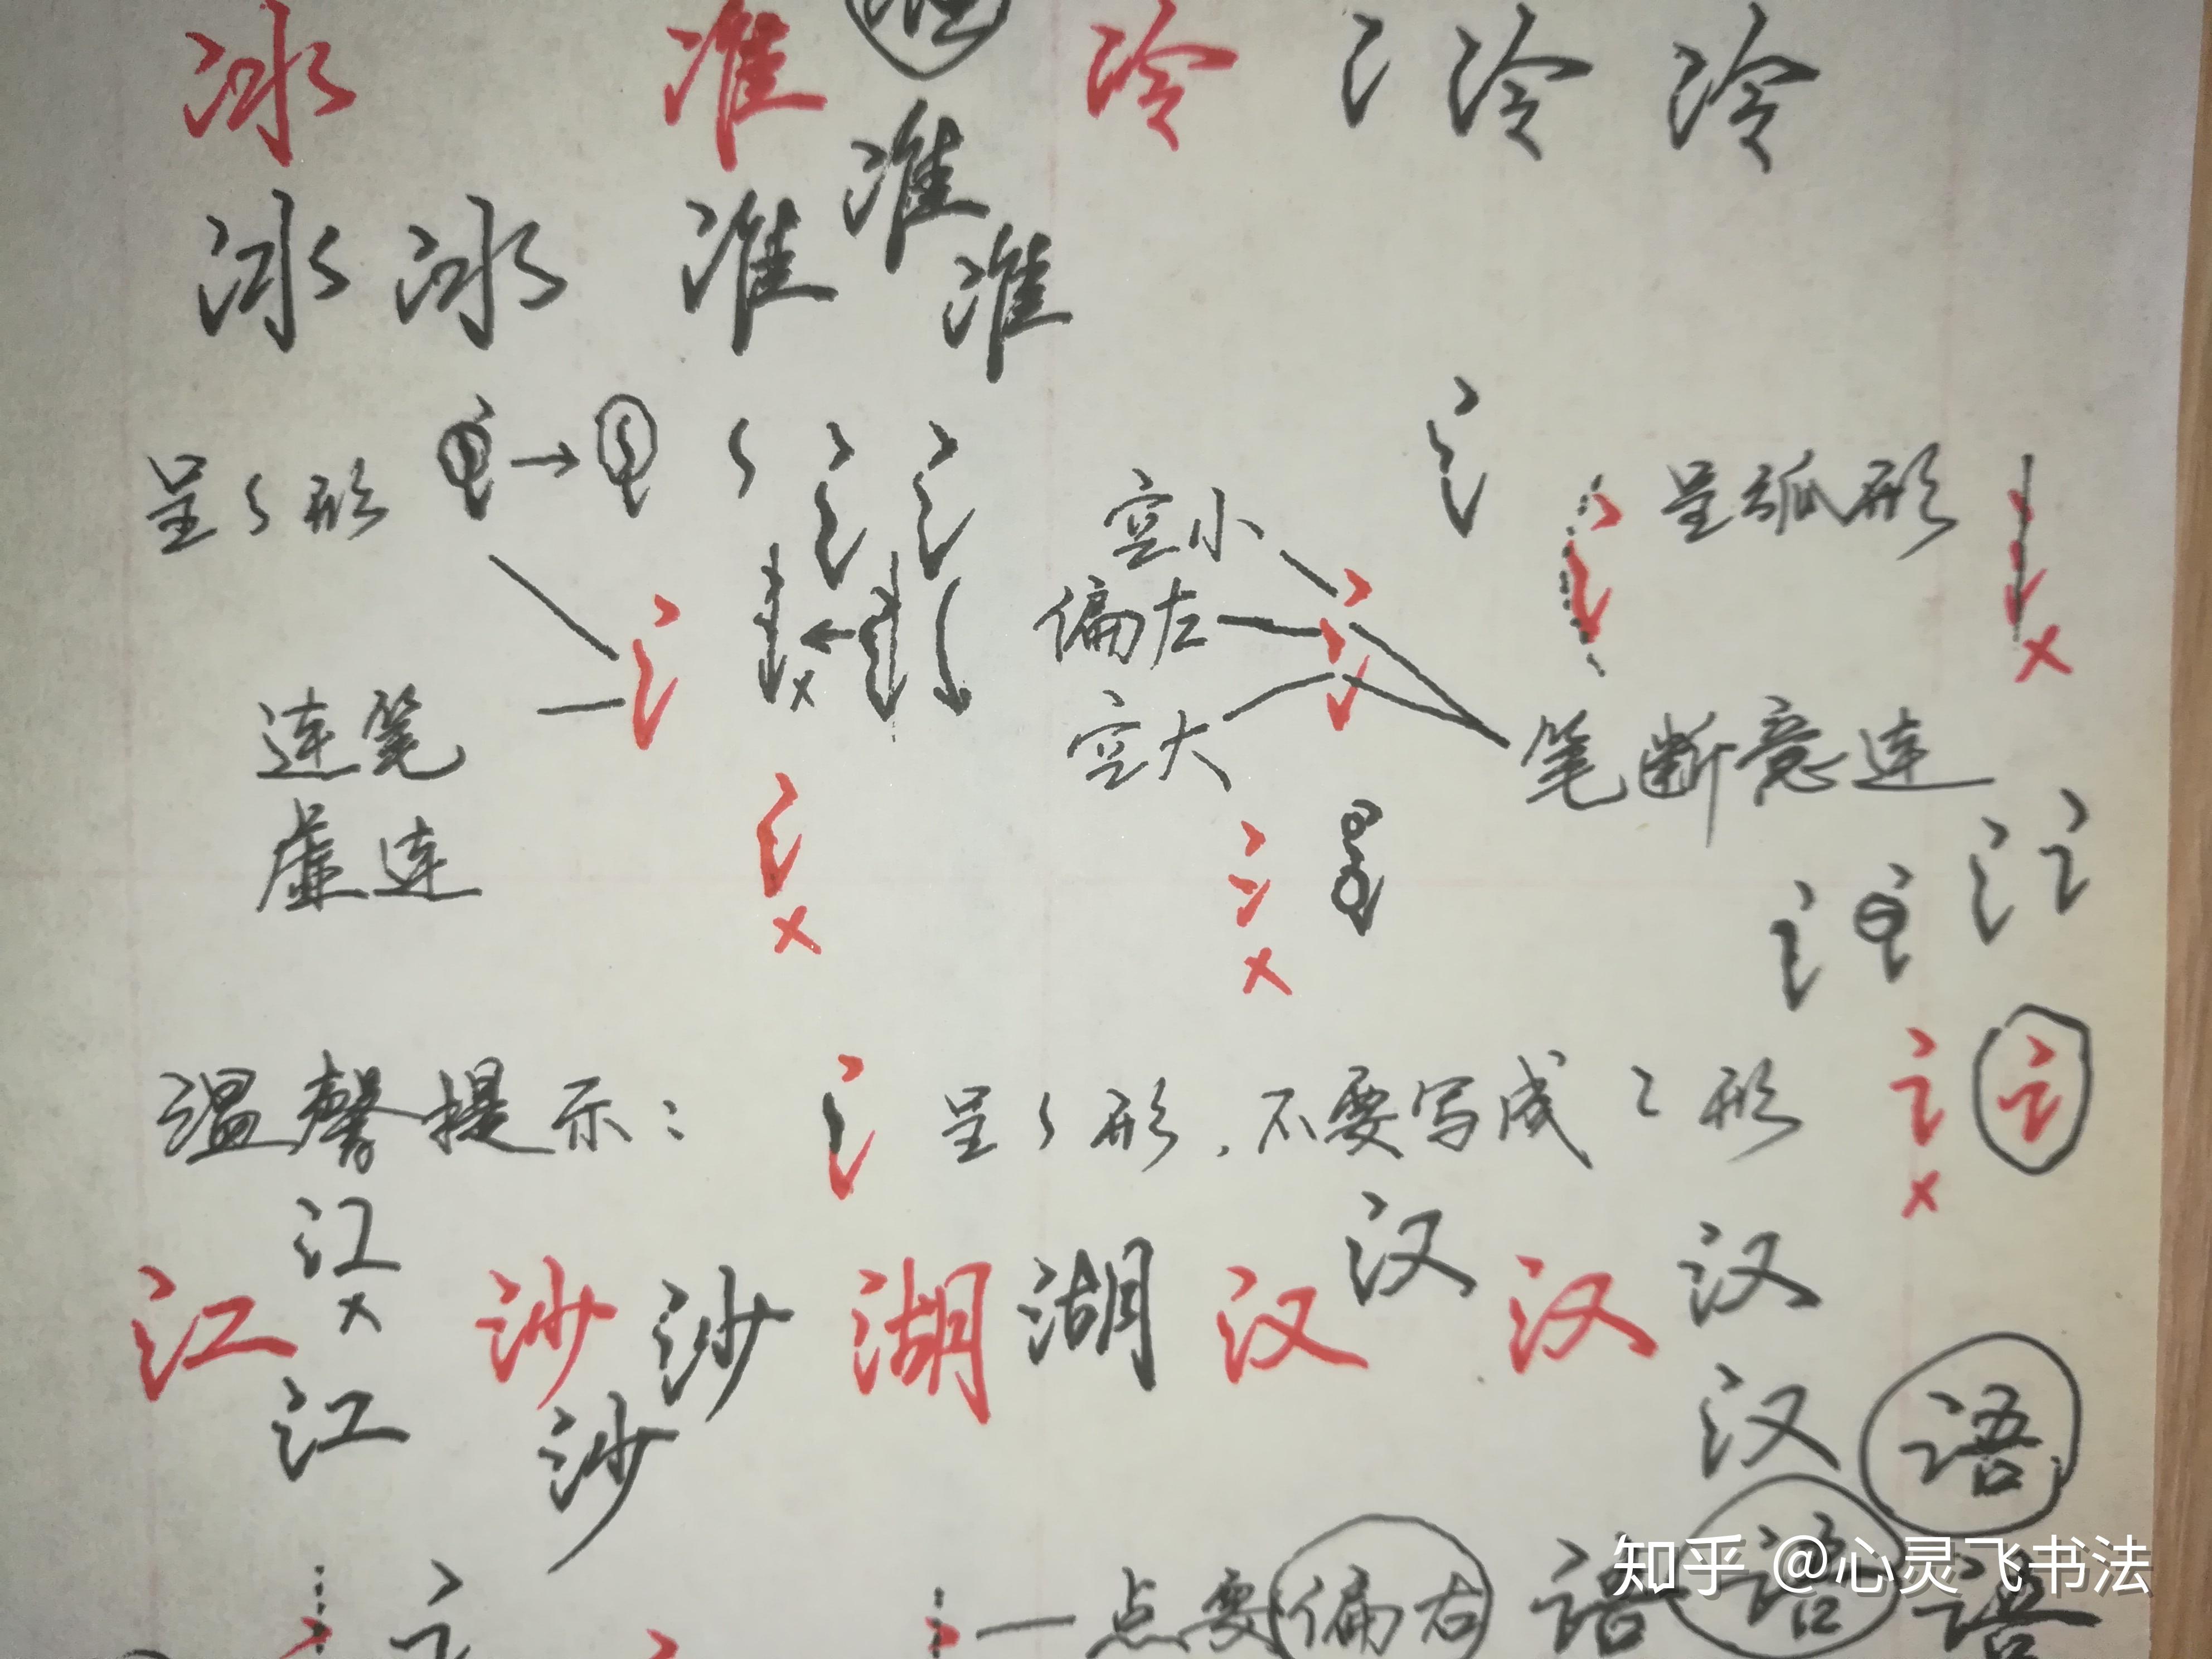 冰 准 冷 冫 冷 冷
准
冰 冰 准 准
呈 S 形
空小
呈弧形
偏左
连笔
空大
笔断意连
虚连
温馨提示： 氵 呈 S 形，不要写成 Z 形
江
汉
江 沙 沙 湖 湖 汉 汉 汉
江 沙
汉 语
点要偏右 语 语 语
知乎 @心灵飞书法